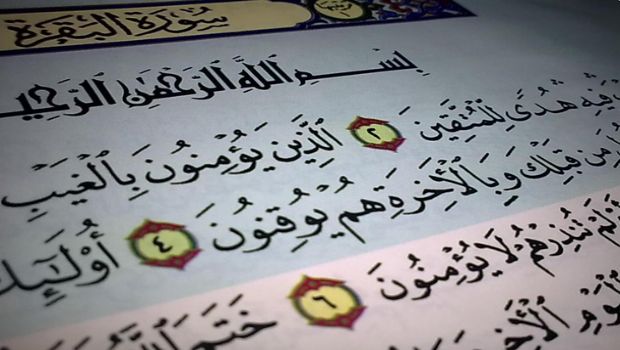 سُورَةُ البَقَرَةِ
بِسْمِ ٱللَّهِ ٱلرَّحْمَٰنِ ٱلرَّحِي
فِيهِ هُدًى لِّلْمُتَّقِينَ ٢ ٱلَّذِينَ يُؤْمِنُونَ بِٱلْغَيْبِ
مِن قَبْلِكَ وَبِٱلْأَخِرَةِ هُمْ يُوقِنُونَ ٤ أُوْلَٰٓئِكَ
تُنذِرْهُمْ لَا يُؤْمِنُونَ ٦ خَتَمَ ٱللَّهُ